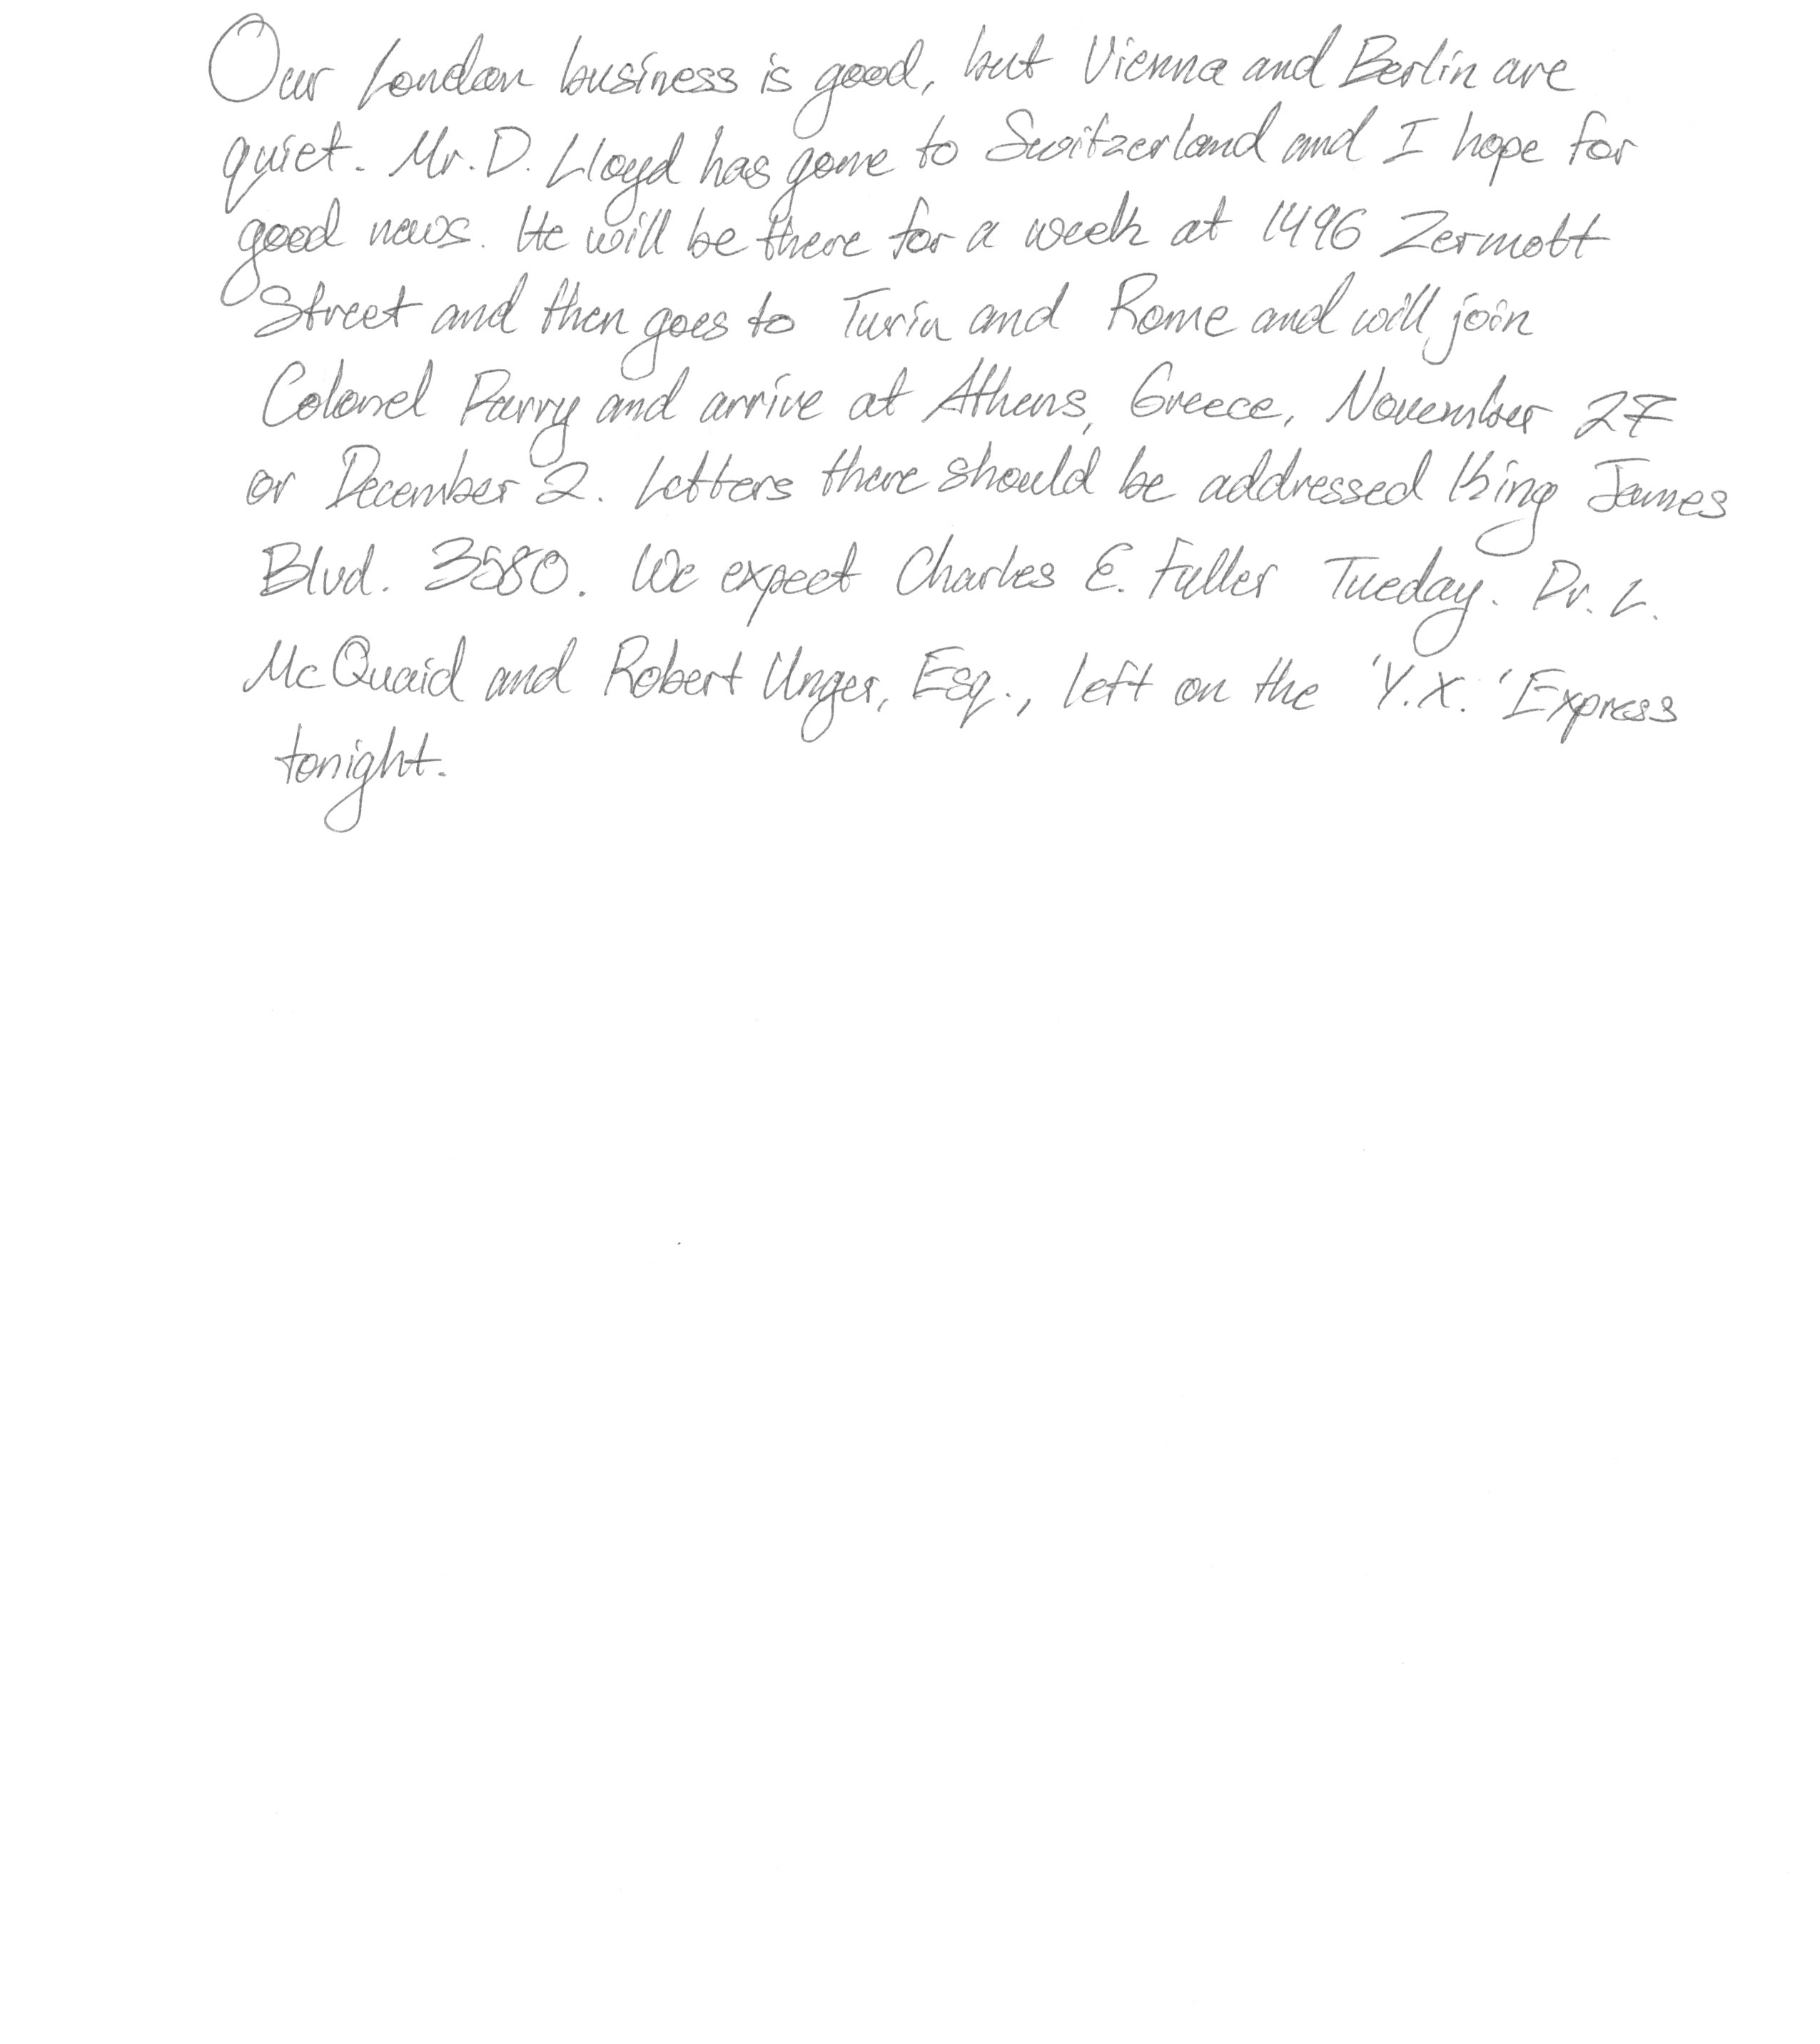 Our London business is good, but Vienna and Berlin are
quiet. Mr. D. Lloyd has gone to Switzerland and I hope for
good news. He will be there for a week at 1496 Zermott
Street and then goes to Turin and Rome and will join
Colonel Parry and arrive at Athens, Greece, November 27
or December 2. Letters there should be addressed King James
Blvd. 3580. We expect Charles E. Fuller Tueday. Dr. L.
McQuaid and Robert Unger, Esq., left on the 'Y.X.' Express
tonight.